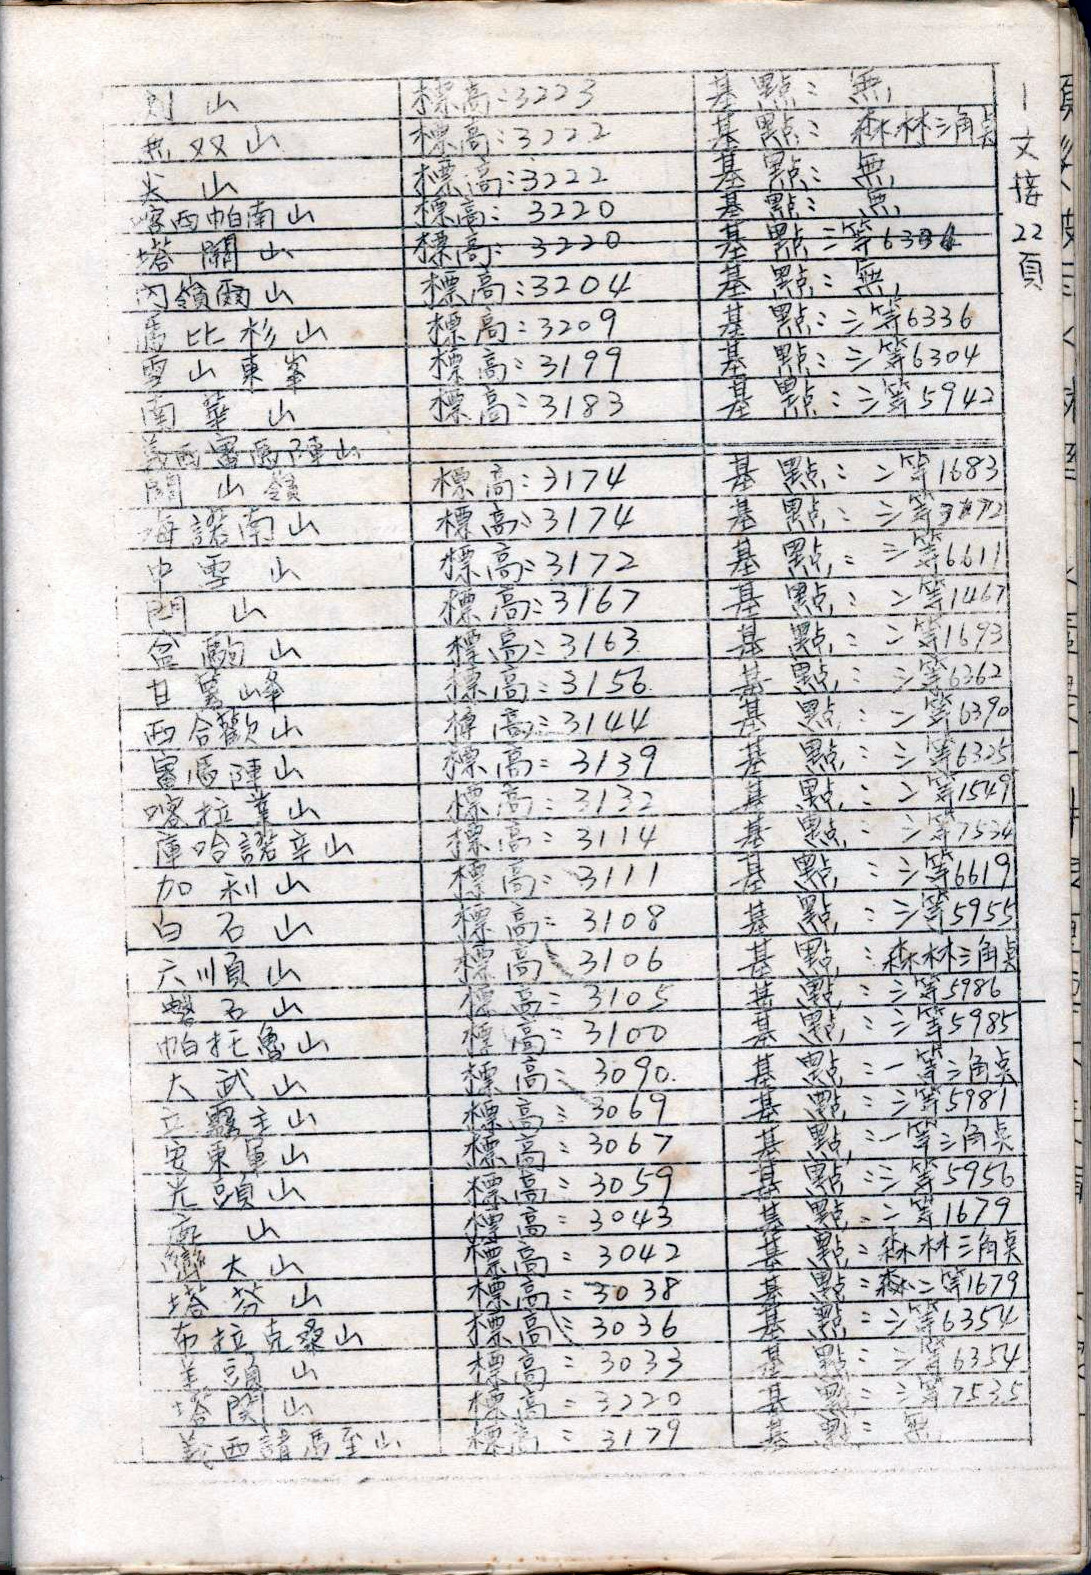 山 標高:3223 基點：無
無双山 標高:3222 基點：森林三角点
尖山 標高:3222 基點：無
喀西帕南山 標高：3220 基點：無
塔關山 標高：3220 基點三等
內嶺爾山 標高:3204 基點：無
馬比杉山 標高:3209 基點：三等6336
雪山東峯 標高:3199 基點：三等6304
南華山 標高:3183 基點：三等5942
義西審馬陣山
關山嶺 標高:3174 基點：二等1683
海諾南山 標高:3174 基點：三等
中雪山 標高:3172 基點：三等6611
閂山 標高:3167 基點：二等1467
盆駒山 標高:3163 基點：二等1693
甘薯峰 標高：3156 基點：三等6362
西合歡山 標高：3144 基點：三等6390
審馬陣山 標高：3139 基點：三等6325
喀拉業山 標高：3132 基點：二等1549
庫哈諾辛山 標高：3114 基點：三等7534
加利山 標高：3111 基點：三等6619
白石山 標高：3108 基點：三等5955
六順山 標高 3106 基點：森林三角点
磐石山 標高：3105 基點：三等5986
帕托魯山 標高：3100 基點：三等5985
大武山 標高：3090 基點：一等三角点
立霧主山 標高：3069 基點：三等5981
安東軍山 標高：3067 基點：一等三角点
光頭山 標高：3059 基點：三等5956
山 標高：3043 基點：二等1679
巒大山 標高：3042 基點：森林三角点
塔芬山 標高：3038 基點：森二等1679
布拉克桑山 標高：3036 基點：三等6354
羊頭山 標高：3033 基點：三等6354
塔關山 標高：3220 基點：三等7535
義西請馬至山 標高：3179 基點：無
文接22頁